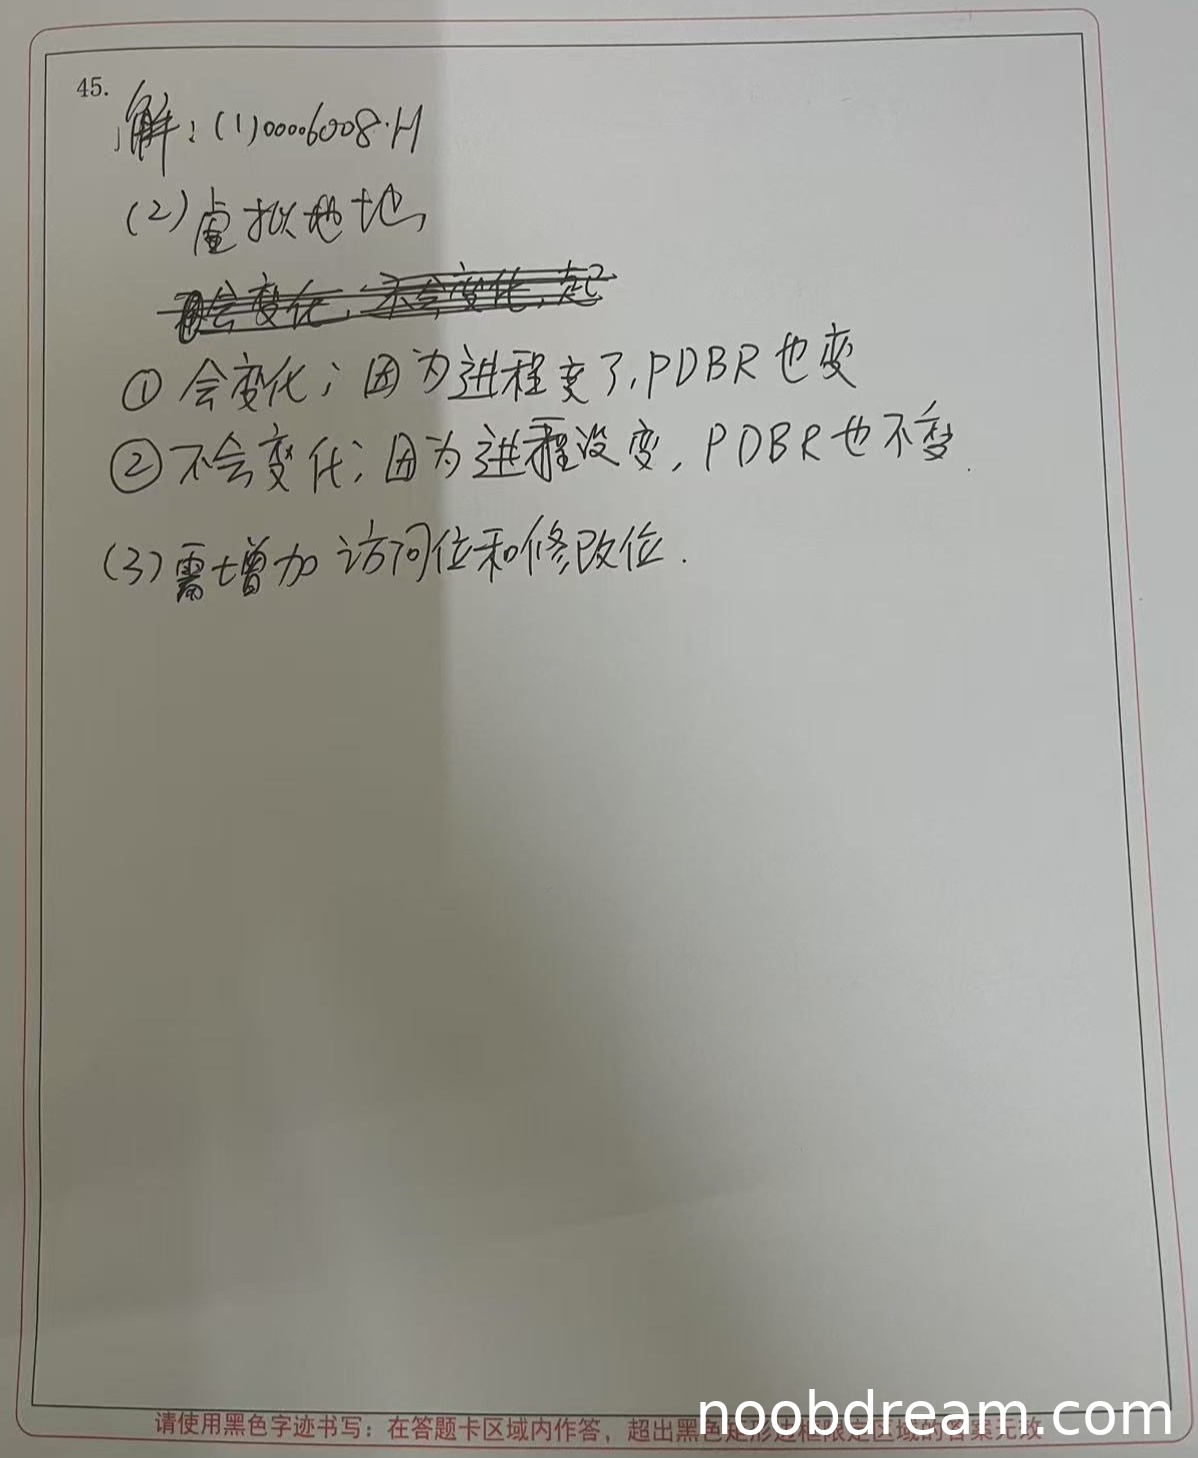 45.
解:(1)00006008.H
(2)虚拟地址
会变化,不会变化,起
①会变化;因为进程变了,PDBR也变
②不会变化;因为进程没变,PDBR也不变.
(3)需增加 访问位和修改位.
请使用黑色字迹书写:在答题卡区域内作答,超出黑色矩形边框限定区域的答案无效
noobdream.com